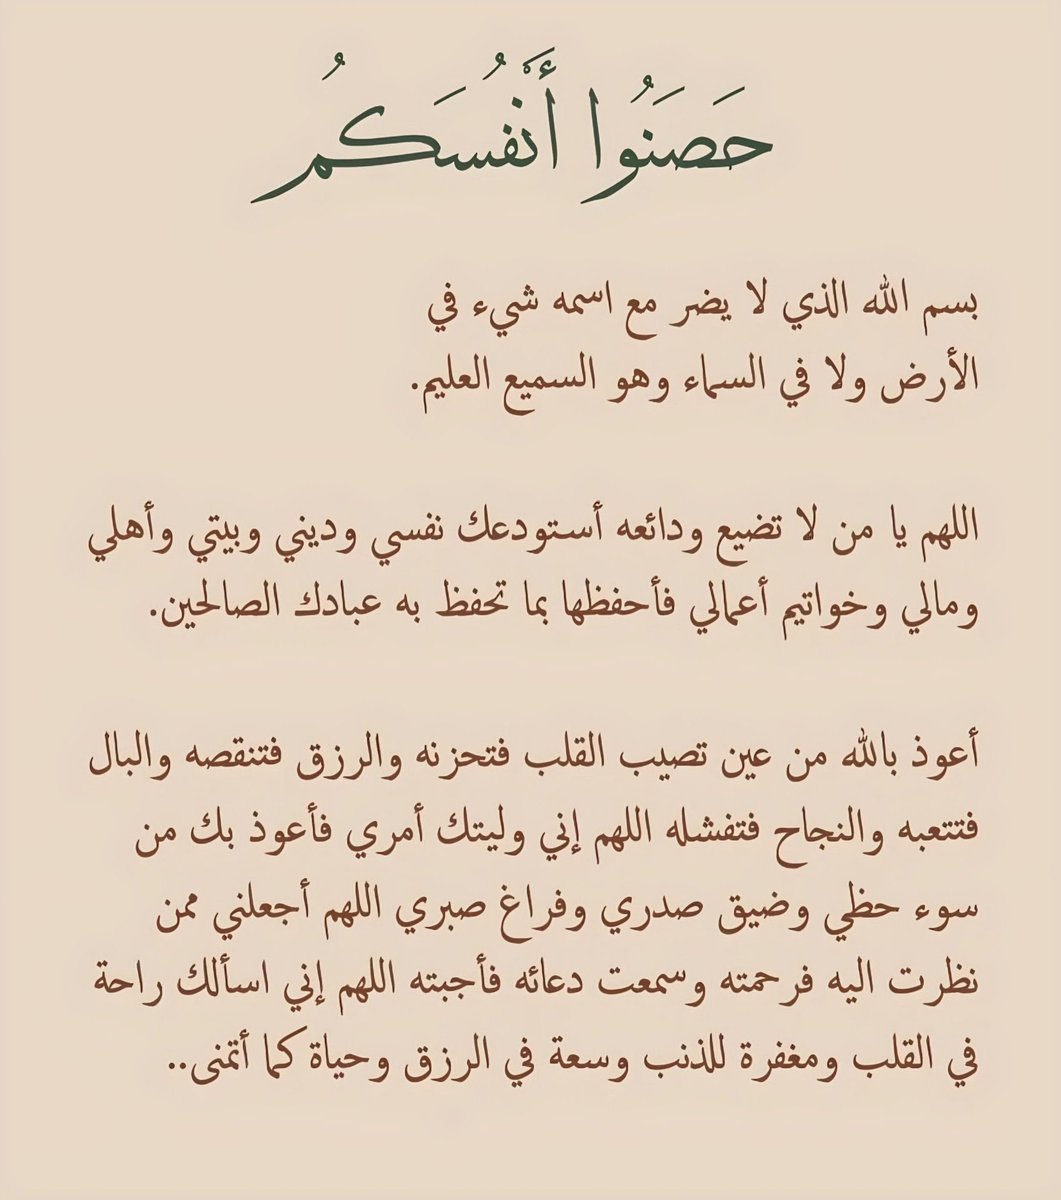 حَصَنَُوا أَنْفُسَكمُ
بسم الله الذي لا يضر مع اسمه شيء في
الأرض ولا في السماء وهو السميع العليم.
اللهم يا من لا تضيع ودائعه أستودعك نفسي وديني وبيتي وأهلي
ومالي وخواتيم أعمالي فأحفظها بما تحفظ به عبادك الصالحين.
أعوذ بالله من عين تصيب القلب فتحزنه والرزق فتنقصه والبال
فتتعبه والنجاح فتفشله اللهم إني وليتك أمري فأعوذ بك من
سوء حظي وضيق صدري وفراغ صبري اللهم أجعلني ممن
نظرت اليه فرحمته وسمعت دعائه فأجبته اللهم إني اسألك راحة
في القلب ومغفرة للذنب وسعة في الرزق وحياة كما أتمنى..